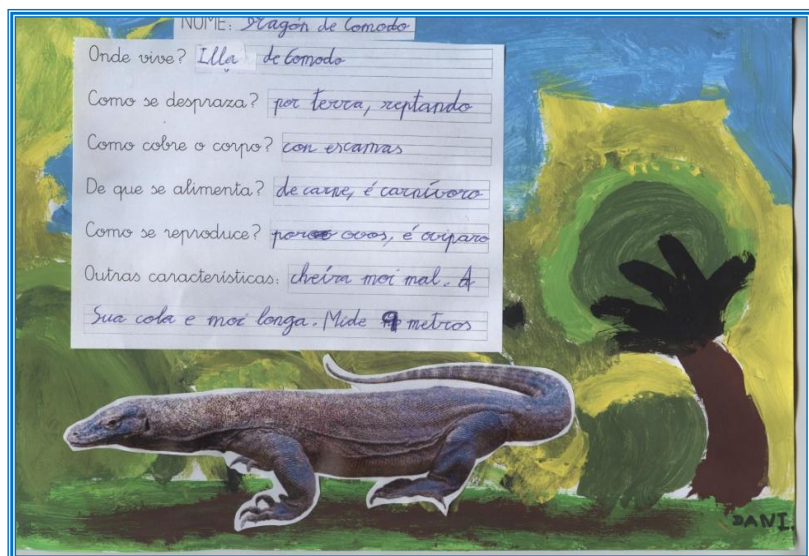 NOME: Dragón de Comodo
Onde vive? Illa de Comodo
Como se despraza? por terra, reptando
Como cobre o corpo? con escamas
De que se alimenta? de carne, é carnívoro
Como se reproduce? por ovos, é ovíparo
Outras características: cheira moi mal. A
Sua cola e moi longa. Mide 9 metros
DANI.